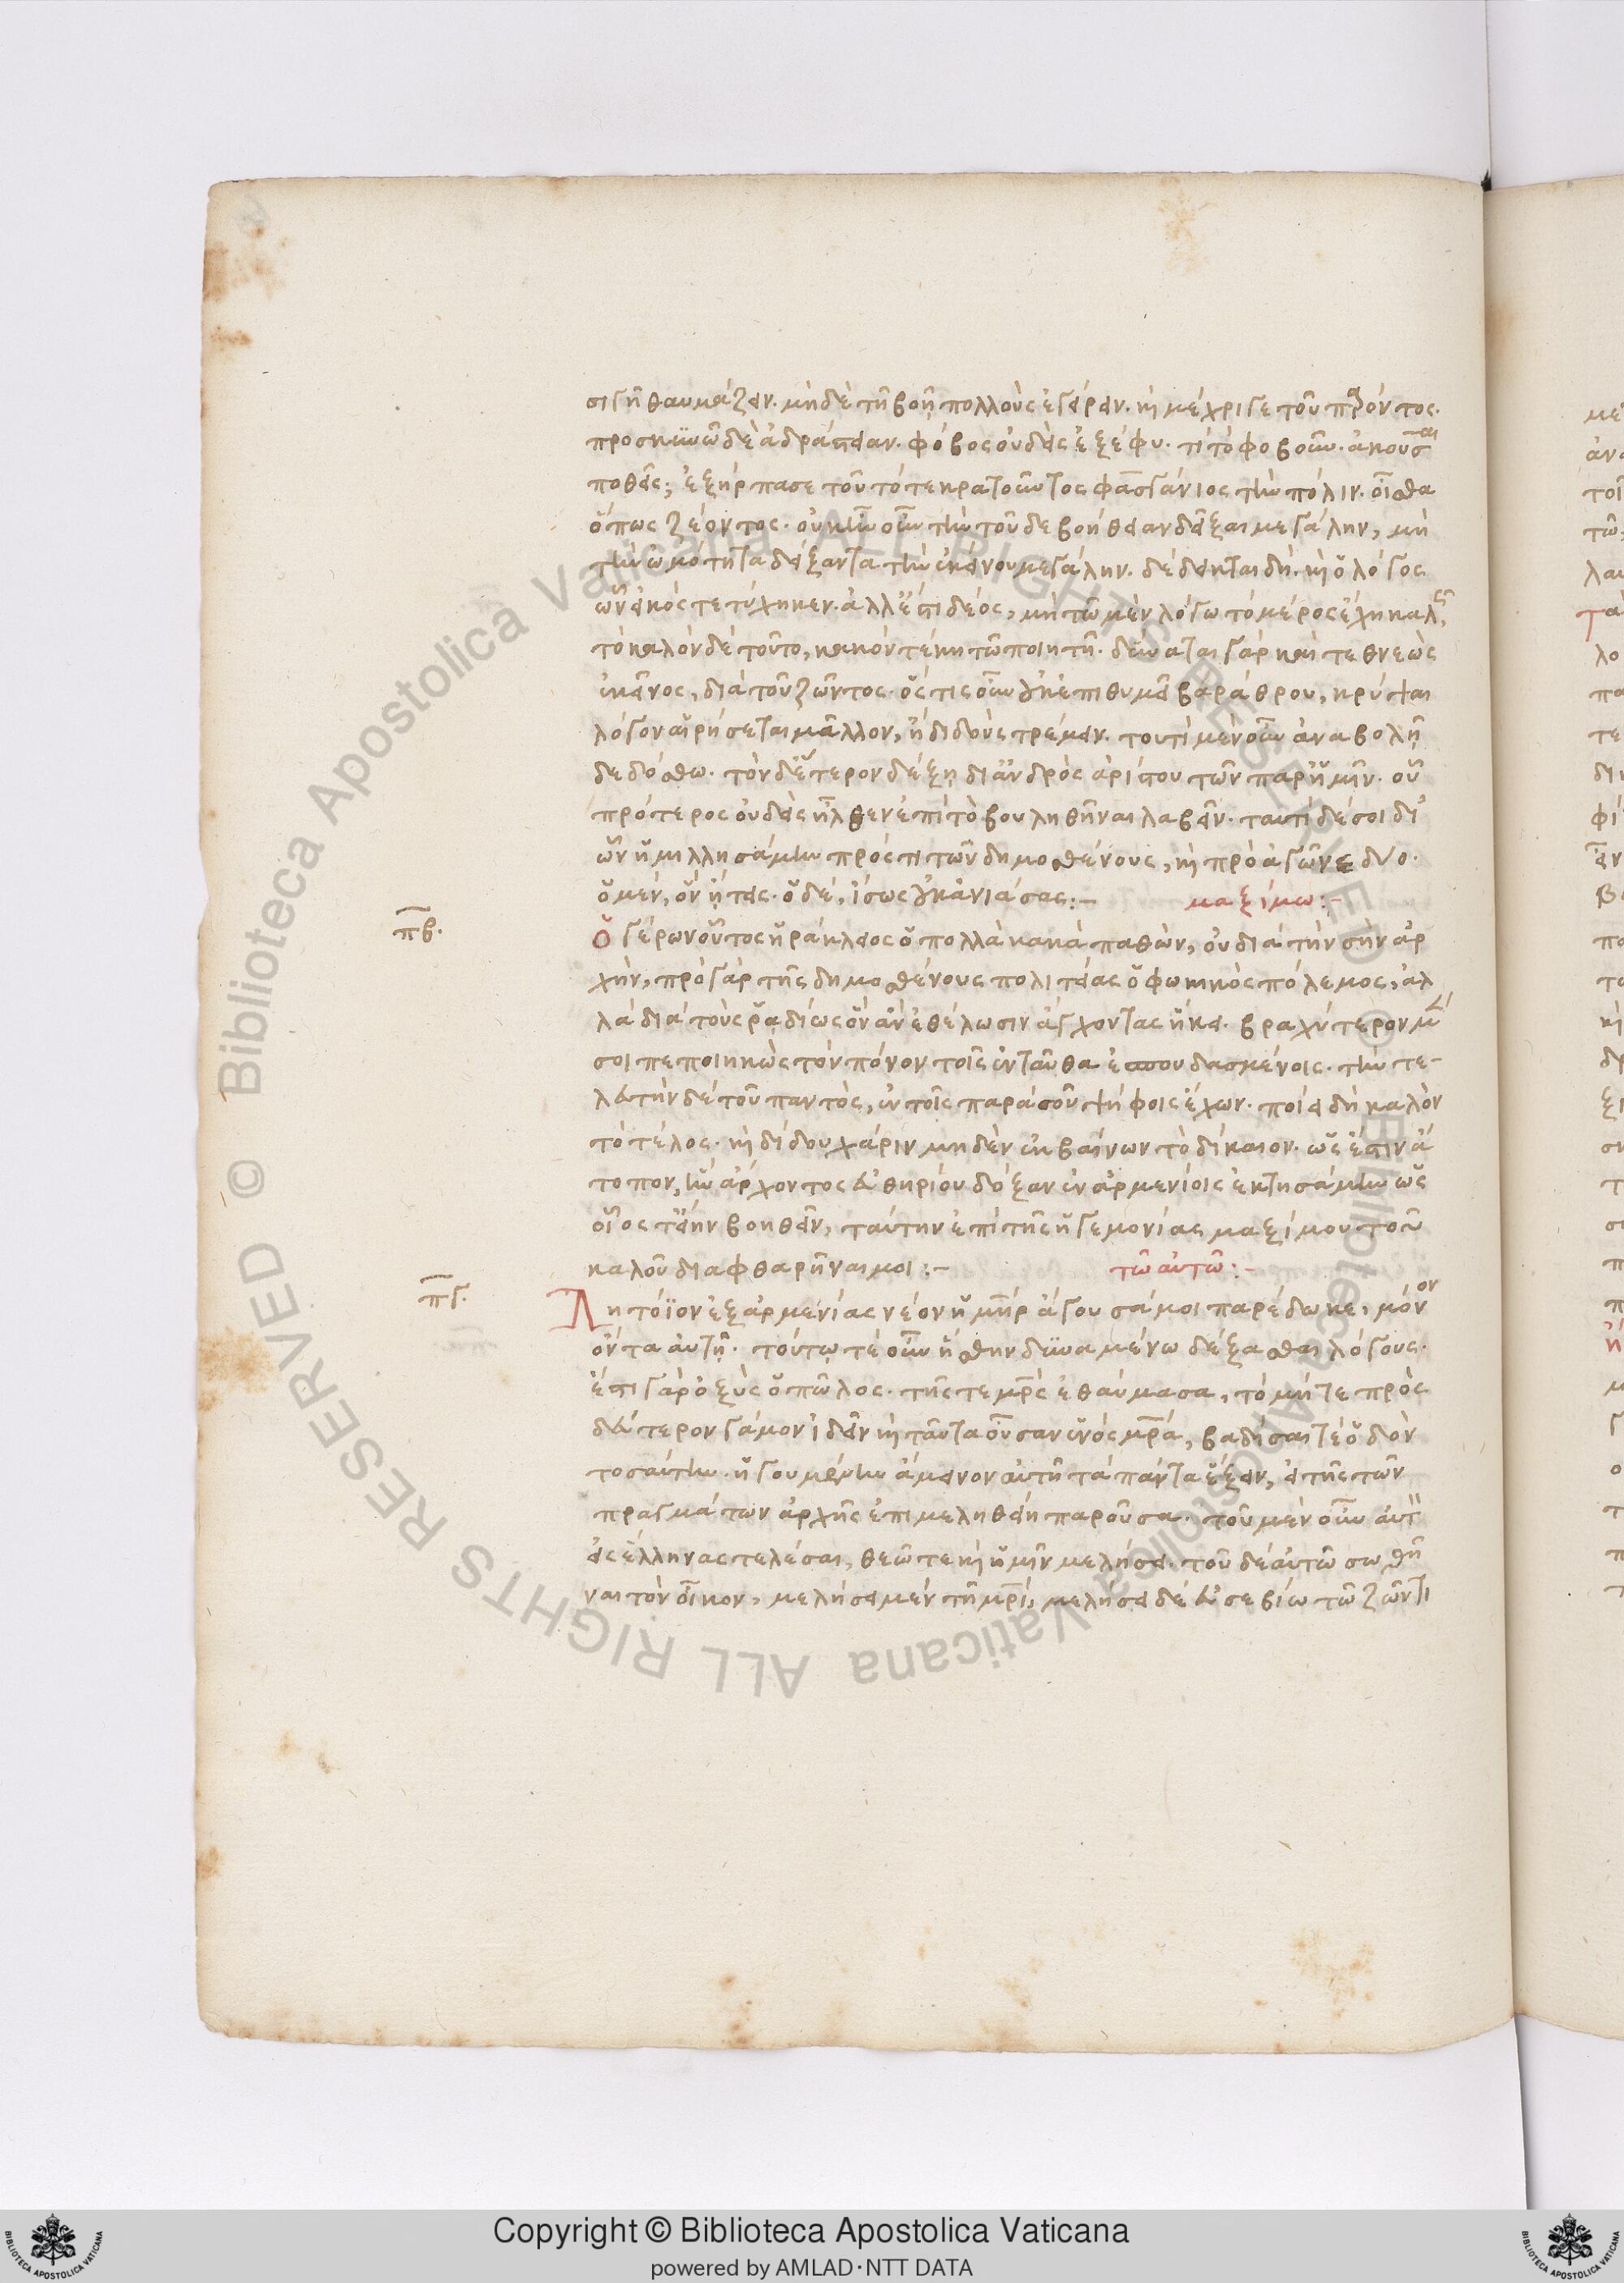 σιγῆ θαυμάζειν. μηδὲ τῆ βοῆ πολλοὺς ἐγείρειν. καὶ μέχρι γε τοῦ παρόντος.
προσκυνῶ δὲ ἀδράστειαν. φόβος οὐδεὶς ἐξέφυ. τί τὸ φοβοῦν. ἀκοῦσαι
ποθεῖς; ἐξήρπασε τοῦ τότε κρατοῦντος φασγάνιος τὴν πόλιν. οἶσθα
ὅπως ζέοντος. οὐκ ἦν οὖν τὴν τοῦδε βοήθειαν δεῖξαι μεγάλην, μὴ
τὴν ὠμότητα δείξαντα τὴν ἐκείνου μεγάλην. δέδεικται δὴ. καὶ ὁ λόγος
ὧν εἰκός τετύχηκεν. ἀλλ' ἔστι δέος, μὴ τῶ μὲν λόγω τὸ μέρος ἔχη καλῶς,
τὸ καλὸν δὲ τοῦτο, κακόν τέκη τῶ ποιητῆ. δύναται γὰρ καὶ τεθνεὼς
ἐκεῖνος, διὰ τοῦ ζῶντος. ὅστις οὖν οὐκ ἐπιθυμεῖ βαράθρου, κρύψαι
λόγον αἱρήσεται μᾶλλον, ἢ διδοὺς τρέμειν. τουτὶ μὲν οὖν ἀναβολῆ
δεδόσθω. τὸν δεύτερον δέξη δι' ἀνδρὸς ἀρίστου τῶν παρ' ἡμῖν. οὗ
πρότερος οὐδεὶς ἦλθεν ἐπὶ τὸ βουληθῆναι λαβεῖν. ταυτὶ δέ σοι δι'
ὧν ἡμιλλησάμην πρός τι τῶν δημοσθένους, καὶ πρὸ ἀγῶνε δύο.
ὁ μὲν, ὃν ᾔτεις. ὁ δὲ, ἴσως οὐκ ἀνιάσας:–
μαξίμω:–
πβ.
ὁ γέρων οὗτος ἡράκλειος ὁ πολλὰ κακὰ παθὼν, οὐ διὰ τὴν σὴν ἀρ
χὴν, πρὸ γὰρ τῆς δημοσθένους πολιτείας ὁ φωκικὸς πόλεμος, ἀλ
λὰ διὰ τοὺς ῥαδίως ὃν ἂν ἐθέλωσιν ἄγχοντας ἥκει. βραχύτερον μέν
σοι πεποιηκὼς τὸν πόνον τοῖς ἐνταῦθα ἐσπουδασμένοις. τὴν τε-
λευτὴν δὲ τοῦ παντὸς, ἐν τοῖς παρὰ σοῦ ψήφοις ἔχων. ποίει δὴ καλὸν
τὸ τέλος. καὶ δίδου χάριν μηδὲν ἐκβαίνων τὸ δίκαιον. ὡς ἔστιν ἄ
τοπον, ἣν ἄρχοντος εὐθηρίου δόξαν ἐν ἀρμενίοις ἐκτησάμην ὡς
οἷος τ' εἴην βοηθεῖν, ταύτην ἐπὶ τῆς ἡγεμονίας μαξίμου τοῦ
καλοῦ διαφθαρῆναι μοι:–
τῶ αὐτῶ:–
πγ.
Λητόϊον ἐξ ἀρμενίας νέον ἡ μήτηρ ἄγουσά μοι παρέδωκε, μόνον
ὄντα αὐτῆ. τούτω τε οὖν ἥσθην δυναμένω δέξασθαι λόγους.
ἔστι γὰρ ὀξὺς ὁ πῶλος. τῆς τε μητρὸς ἐθαύμασα, τὸ μήτε πρὸς
δεύτερον γάμον ἰδεῖν καὶ ταῦτα οὖσαν ἑνὸς μητέρα, βαδίσαι τε ὁδὸν
τοσαύτην. ἡγουμένην ἄμεινον αὐτῆ τὰ πάντα ἕξειν, εἰ τῆς τῶν
πραγμάτων ἀρχῆς ἐπιμεληθείη παροῦσα. τοῦ μὲν οὖν αὐτὸν
εἰς ἕλληνας τελέσαι, θεῶ τε καὶ ἡμῖν μελήσει. τοῦ δὲ αὐτῶ σωθῆ
ναι τὸν οἶκον, μελήσει μὲν τῆ μητρὶ, μελήσει δὲ εὐσεβίω τῶ ζῶντι
© Biblioteca Apostolica Vaticana ALL RIGHTS RESERVED
© Biblioteca Apostolica Vaticana ALL RIGHTS RESERVED
Copyright © Biblioteca Apostolica Vaticana
powered by AMLAD·NTT DATA